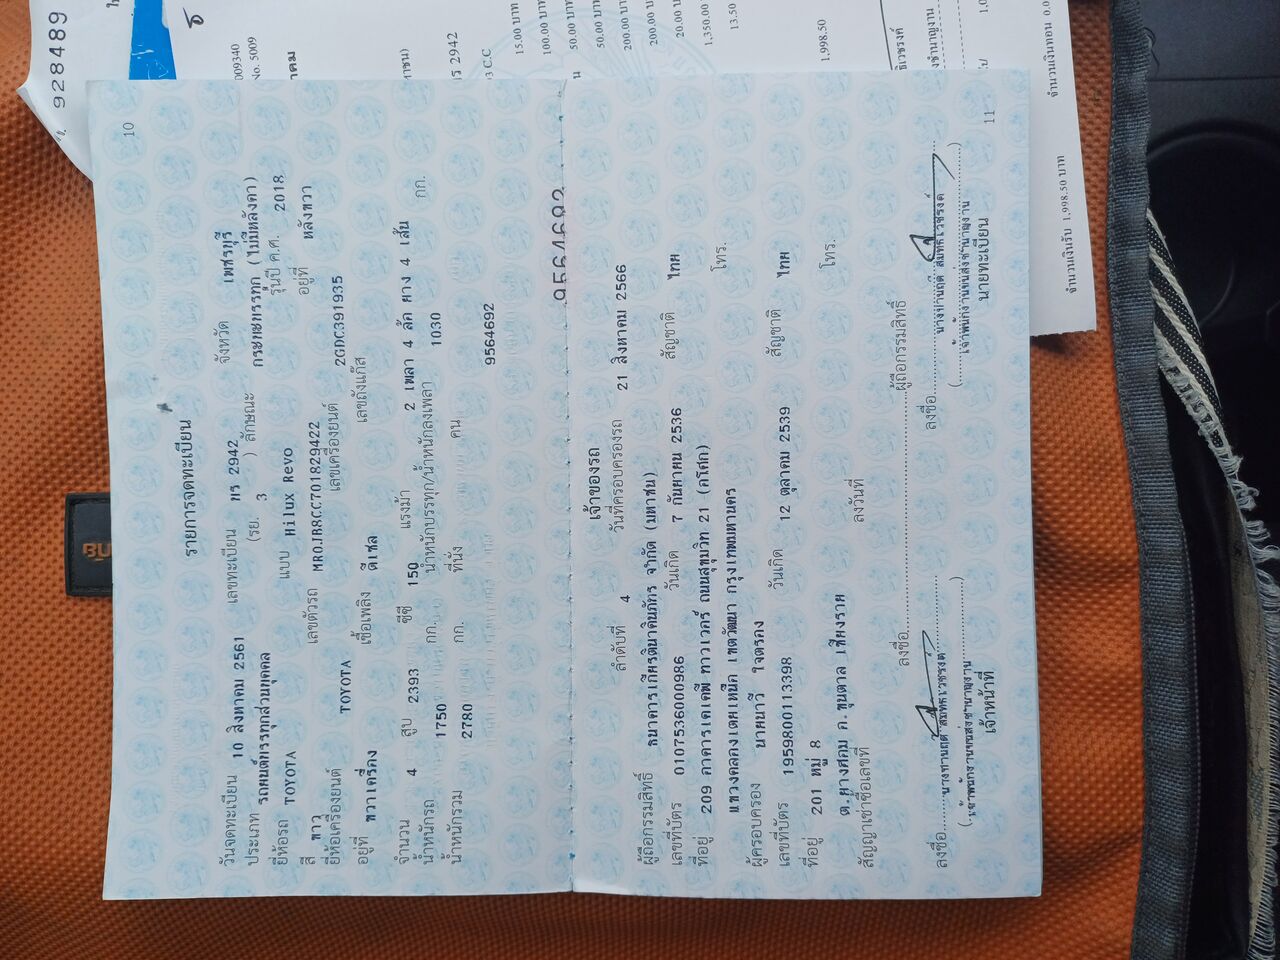 10
รายการจดทะเบียน
วันจดทะเบียน 10 สิงหาคม 2561 เลขทะเบียน 2942 จังหวัด เพชรบุรี
ประเภท รถยนต์บรรทุกส่วนบุคคล (รย. 3 ) ลักษณะ กระบะบรรทุก (ไม่มีหลังคา)
ยี่ห้อรถ TOYOTA แบบ Hilux Revo รุ่นปี ค.ศ. 2018
สี ขาว เลขตัวรถ MR0JB8CC701829422 อยู่ที่ หลังขวา
ยี่ห้อเครื่องยนต์ TOYOTA เลขเครื่องยนต์ 2GDC391935
อยู่ที่ ขวาเครื่อง เชื้อเพลิง ดีเซล เลขถังแก๊ส
จำนวน 4 สูบ 2393 ซีซี 150 แรงม้า 2 เพลา 4 ล้อ ยาง 4 เส้น
น้ำหนักรถ 1750 กก. น้ำหนักบรรทุก/น้ำหนักลงเพลา 1030 กก.
น้ำหนักรวม 2780 กก. ที่นั่ง คน
9564692
9564692
เจ้าของรถ
ลำดับที่ 4 วันที่ครอบครองรถ 21 สิงหาคม 2566
ผู้ถือกรรมสิทธิ์ ธนาคารเกียรตินาคินภัทร จำกัด (มหาชน)
เลขที่บัตร 0107536000986 วันเกิด 7 กันยายน 2536 สัญชาติ ไทย
ที่อยู่ 209 อาคารเคเคพี ทาวเวอร์ ถนนสุขุมวิท 21 (อโศก) โทร.
แขวงคลองเตยเหนือ เขตวัฒนา กรุงเทพมหานคร
ผู้ครอบครอง นายนาวี ใจตรอง
เลขที่บัตร 1959800113398 วันเกิด 12 ตุลาคม 2539 สัญชาติ ไทย
ที่อยู่ 201 หมู่ 8 โทร.
ต.ยางฮอม อ.ขุนตาล เชียงราย
สัญญาเช่าซื้อเลขที่ ลงวันที่
ลงชื่อ ผู้ถือกรรมสิทธิ์
ลงชื่อ ลงชื่อ
(เจ้าพนักงานขนส่งชำนาญงาน) (เจ้าพนักงานขนส่งชำนาญงาน)
เจ้าหน้าที่ นายทะเบียน
11
928489
009340
No. 5009
2942
C.C
15.00 บาท
100.00 บาท
50.00 บาท
50.00 บาท
200.00 บาท
200.00 บาท
20.00 บาท
1,350.00
13.50
1,998.50
จำนวนเงินรับ 1,998.50 บาท
จำนวนเงินทอน